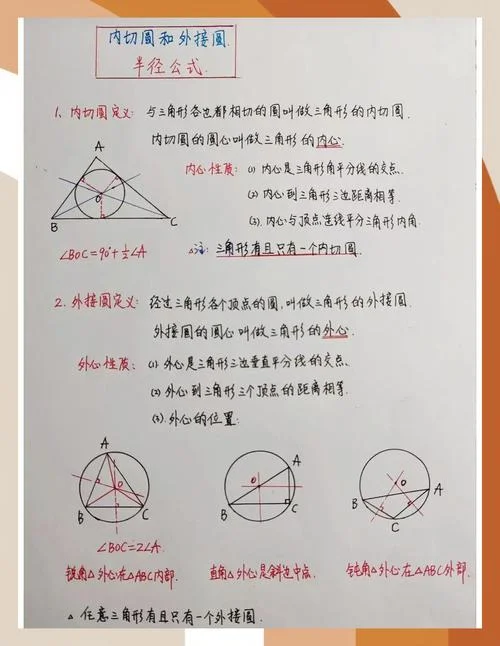 内切圆和外接圆.
半径公式.
1、内切圆定义: 与三角形各边都相切的圆叫做三角形的内切圆.
内切圆的圆心叫做三角形的内心.
A
O
B
C
∠BOC=90°+½∠A
内心性质: (1) 内心是三角形角平分线的交点.
(2) 内心到三角形三边距离相等.
(3). 内心与顶点连线平分三角形内角.
△注: 三角形有且只有一个内切圆.
2. 外接圆定义: 经过三角形各个顶点的圆,叫做三角形的外接圆.
外接圆的圆心叫做三角形的外心.
外心性质: (1) 外心是三角形三边垂直平分线的交点.
(2) 外心到三角形三个顶点的距离相等.
(3). 外心的位置:
A
O
B
C
∠BOC=2∠A.
锐角△外心在△ABC内部.
A
O
B
C
直角△外心是斜边中点.
O
A
B
C
钝角△外心在△ABC外部.
△ 任意三角形有且只有一个外接圆.